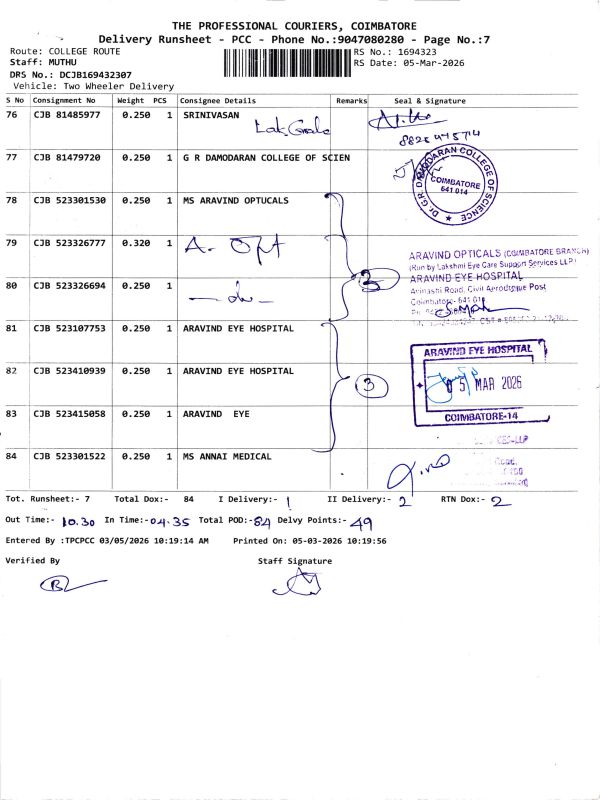 THE PROFESSIONAL COURIERS, COIMBATORE
Delivery Runsheet - PCC - Phone No.:9047080280 - Page No.:7
Route: COLLEGE ROUTE
RS No.: 1694323
Staff: MUTHU
RS Date: 05-Mar-2026
DRS No.: DCJB169432307
Vehicle: Two Wheeler Delivery
S No Consignment No Weight PCS Consignee Details Remarks Seal & Signature
76 CJB 81485977 0.250 1 SRINIVASAN
77 CJB 81479720 0.250 1 G R DAMODARAN COLLEGE OF SCIEN
Dr. G.R. DAMODARAN COLLEGE OF SCIENCE
COIMBATORE
641 014
78 CJB 523301530 0.250 1 MS ARAVIND OPTUCALS
79 CJB 523326777 0.320 1 A. Opt
ARAVIND OPTICALS (COIMBATORE BRANCH)
(Run by Lakshmi Eye Care Support Services LLP)
ARAVIND EYE HOSPITAL
Avinashi Road, Civil Aerodrome Post
Coimbatore- 641 014
80 CJB 523326694 0.250 1 -do-
2
81 CJB 523107753 0.250 1 ARAVIND EYE HOSPITAL
82 CJB 523410939 0.250 1 ARAVIND EYE HOSPITAL
3
ARAVIND EYE HOSPITAL
05 MAR 2026
COIMBATORE-14
83 CJB 523415058 0.250 1 ARAVIND EYE
84 CJB 523301522 0.250 1 MS ANNAI MEDICAL
Tot. Runsheet:- 7 Total Dox:- 84 I Delivery:- 1 II Delivery:- 2 RTN Dox:- 2
Out Time:- 10.30 In Time:- 04.35 Total POD:- 84 Delvy Points:- 49
Entered By :TPCPCC 03/05/2026 10:19:14 AM Printed On: 05-03-2026 10:19:56
Verified By Staff Signature